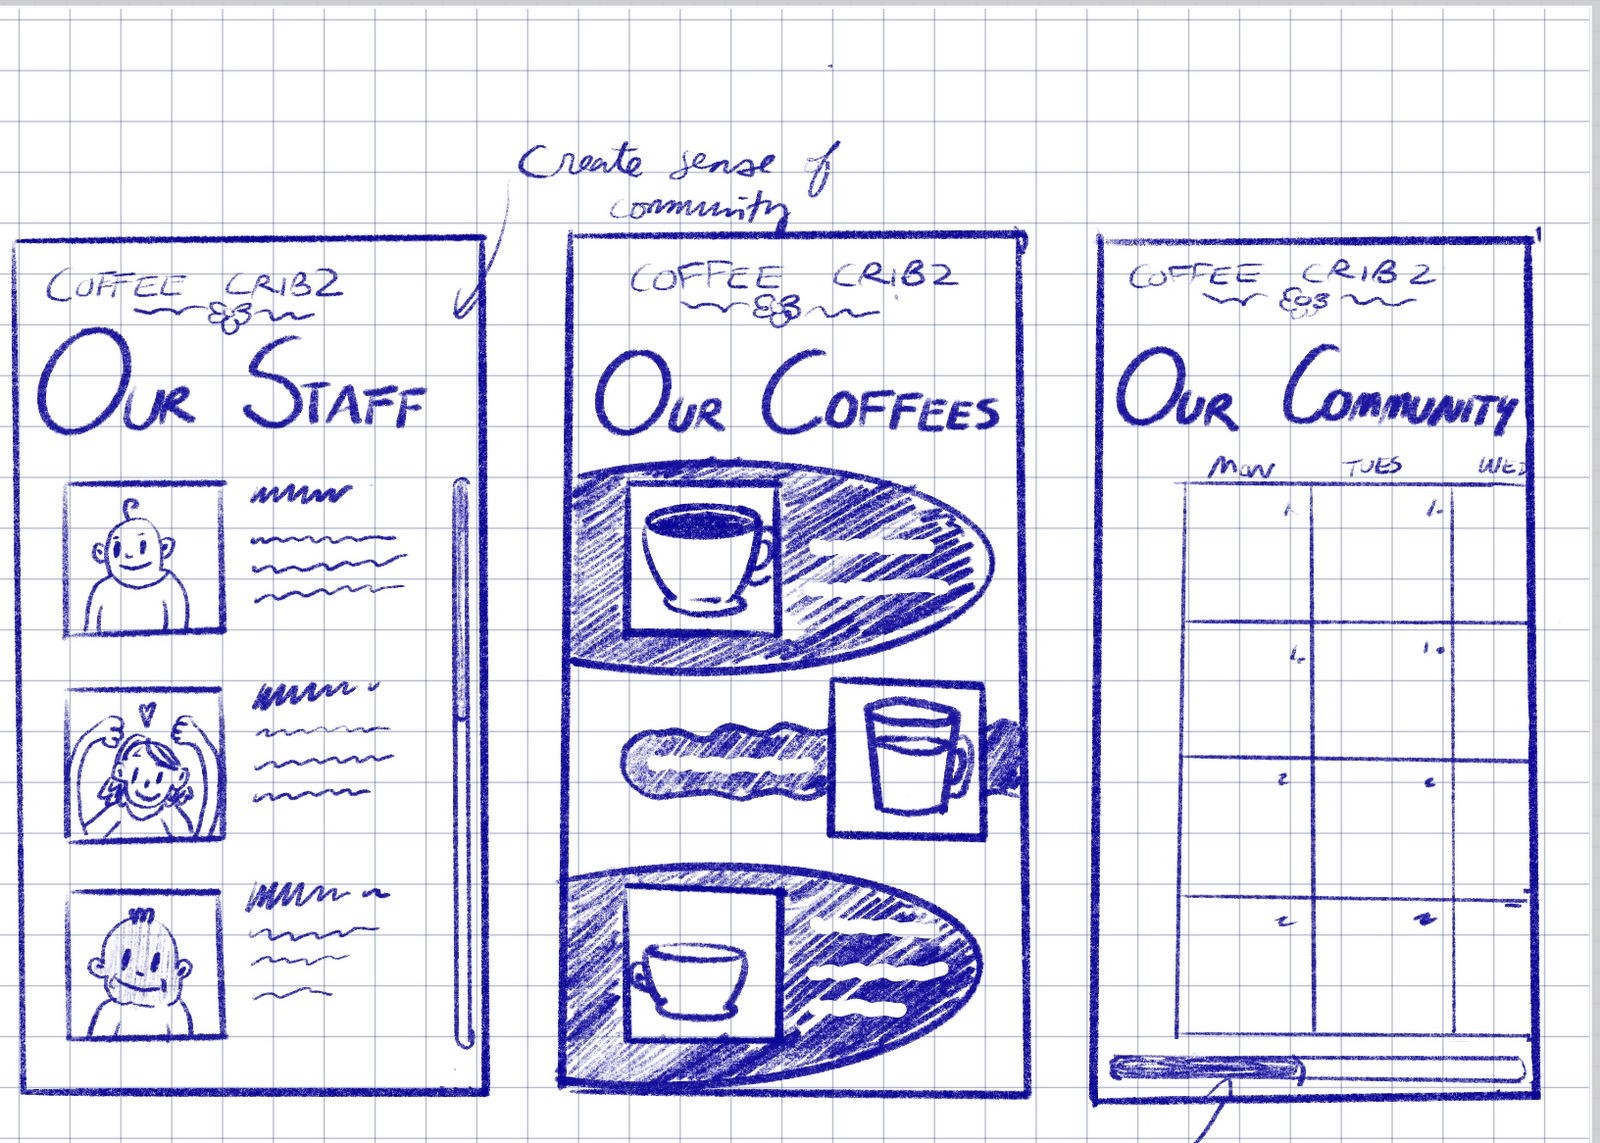 Create sense of
community
COFFEE CRIBZ
OUR STAFF
COFFEE CRIBZ
OUR COFFEES
COFFEE CRIBZ
OUR COMMUNITY
MON TUES WED